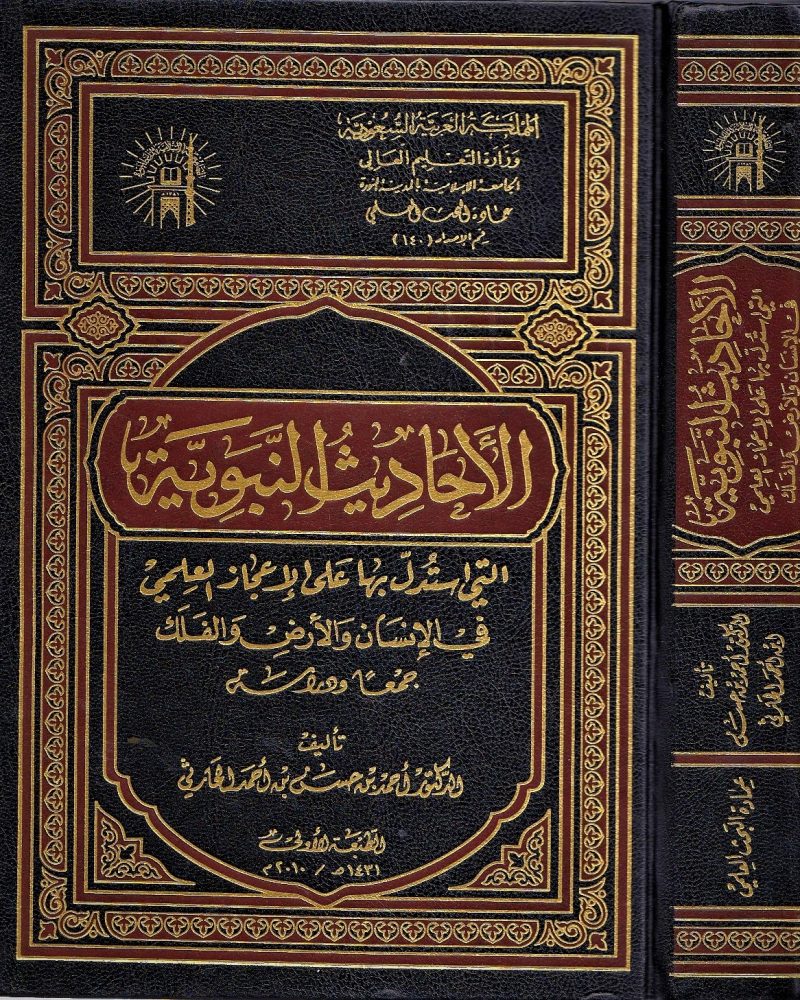 المملكة العربية السعودية
وزارة التعليم العالي
الجامعة الإسلامية بالمدينة المنورة
عمادة البحث العلمي
رقم الإصدار (١٤٠)
الأحاديث النبوية
التي استدل بها على الإعجاز العلمي
في الإنسان والأرض والفلك
جمعًا ودراسة
تأليف
الدكتور أحمد بن حسن بن أحمد الحارثي
الطبعة الأولى
١٤٣١هـ / ٢٠١٠م
الأحاديث النبوية
التي استدل بها على الإعجاز العلمي
في الإنسان والأرض والفلك
تأليف
الدكتور أحمد بن حسن
بن أحمد الحارثي
عمادة البحث العلمي